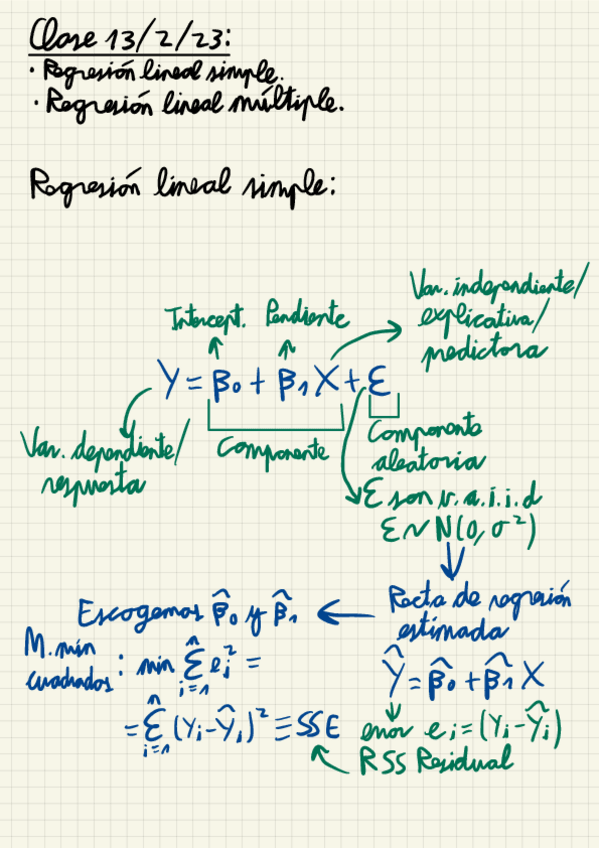 Clase 13/2/23:
· Regresión lineal simple.
· Regresión lineal múltiple.
Regresión lineal simple:
Var. independiente/
explicativa/
predictora
Intercept. Pendiente
Y = β₀ + β₁X + ε
Var. dependiente/
respuesta
Componente
Componente
aleatoria
ε son v.a.i.i.d
ε ~ N(0, σ²)
Recta de regresión
estimada
Ŷ = β̂₀ + β̂₁X
Escogemos β̂₀ y β̂₁
M. mín
cuadrados: min Σᵢ₌₁ⁿ eᵢ² =
= Σᵢ₌₁ⁿ (Yᵢ - Ŷᵢ)² ≡ SSE
error eᵢ = (Yᵢ - Ŷᵢ)
RSS Residual